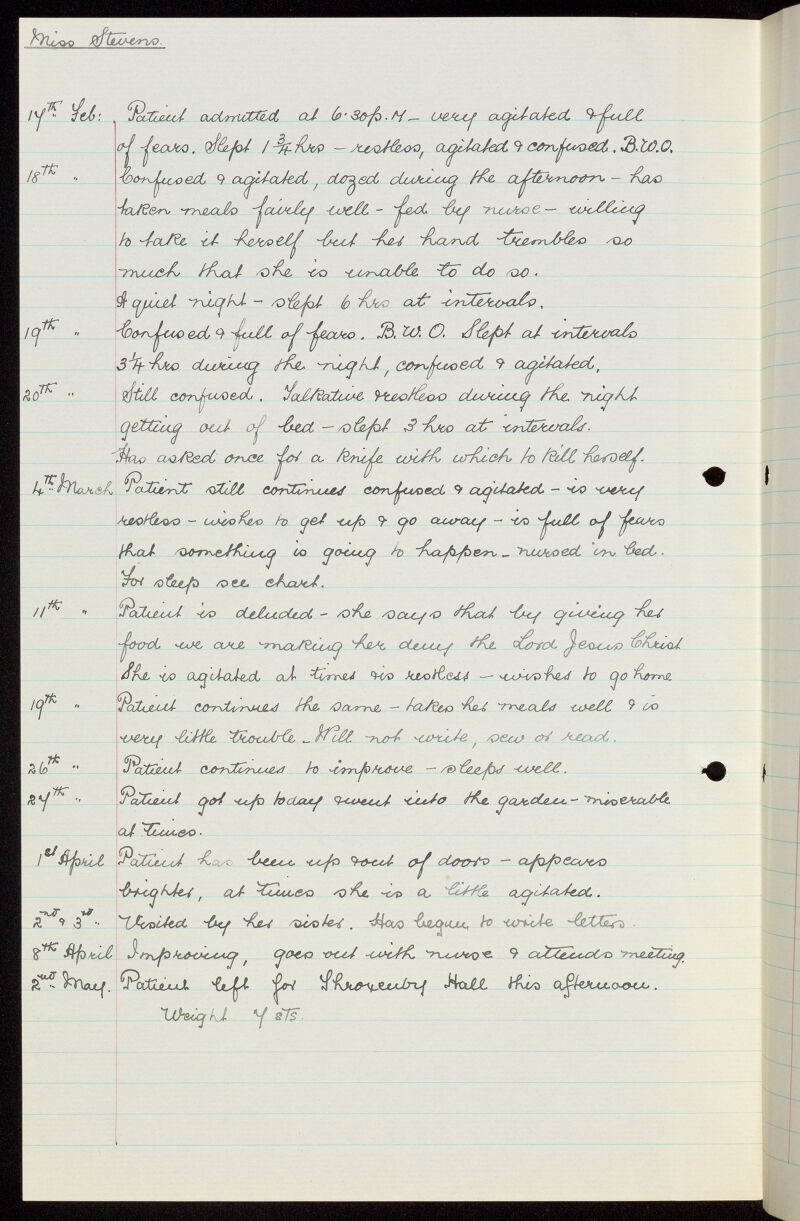 Miss Stevens.
17th Feb: Patient admitted at 6.30p.M – very agitated & full
of fears. Slept 1 3/4 hrs – restless, agitated & confused. B.W.O.
18th " Confused & agitated, dozed during the afternoon – has
taken meals fairly well – fed by nurse – willing
to take it herself but her hand trembles so
much that she is unable to do so.
A quiet night – slept 6 hrs at intervals.
19th " Confused & full of fears. B.W.O. Slept at intervals
3 1/4 hrs during the night, confused & agitated.
20th " Still confused. Talkative & restless during the night
getting out of bed – slept 3 hrs at intervals.
Has asked once for a knife with which to kill herself.
4th March Patient still continues confused & agitated – is very
restless – wishes to get up & go away – is full of fears
that something is going to happen – nursed in bed.
For sleep see chart.
11th " Patient is deluded – she says that by giving her
food we are making her deny the Lord Jesus Christ
She is agitated at times & is restless – wishes to go home
19th " Patient continues the same – takes her meals well & is
very little trouble – Will not write, sew or read.
26th " Patient continues to improve – sleeps well.
27th " Patient got up today & went into the garden – miserable
at times.
1st April Patient has been up & out of doors – appears
brighter, at times she is a little agitated.
2nd & 3rd " Visited by her sister. Has begun to write letters.
8th April Improving, goes out with nurse & attends meeting.
2nd May. Patient left for Hall this afternoon.
Weight 7 sts.